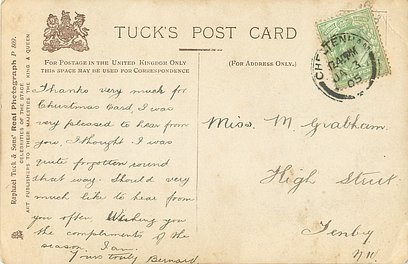 TUCK'S POST CARD
FOR POSTAGE IN THE UNITED KINGDOM ONLY
THIS SPACE MAY BE USED FOR CORRESPONDENCE
(FOR ADDRESS ONLY.)
Raphael Tuck & Sons' Real Photograph P 309.
CELEBRITIES OF THE STAGE
ART PUBLISHERS TO THEIR MAJESTIES THE KING & QUEEN
CHELTENHAM
JA 3
05
Thanks very much for
Christmas Card, I was
very pleased to hear from
you, I thought I was
quite forgotten round
that way. Should very
much like to hear from
you often. Wishing you
the compliments of the
season. I am.
Yours truly Bernard
Miss. M. Grabham.
High Street.
Tenby